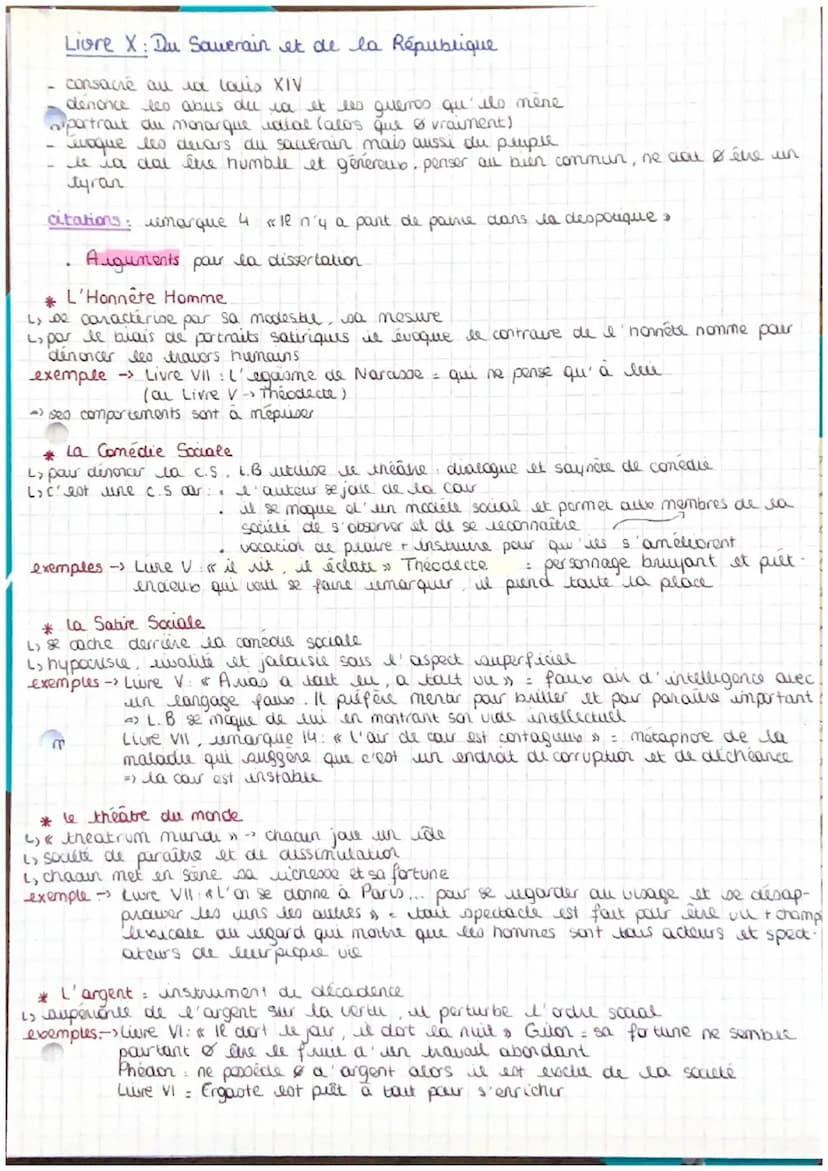 Livre X : Du Souverain et de la République
- consacré au roi Louis XIV
- dénonce les abus du roi et les guerres qu'ils mène
- portrait du monarque idéal (alors que Ø vraiment)
- évoque les devoirs du souverain mais aussi du peuple
- le roi doit être humble et généreux, penser au bien commun, ne doit Ø être un
tyran
citations : remarque 4 « Il n'y a point de patrie dans la despotique »
. Arguments pour la dissertation
* L'Honnête Homme
↳ se caractérise par sa modestie, sa mesure
↳ par le biais de portraits satiriques il évoque le contraire de l'honnête homme pour
dénoncer les travers humains
exemple -> Livre VII : L'égoïsme de Narcisse = qui ne pense qu'à lui
(ou Livre V -> Théodecte)
=> ses comportements sont à mépriser
* La Comédie Sociale
↳ pour dénoncer la c.s, L.B utilise le théâtre : dialogue et saynète de comédie
↳ c'est une c.s car : . l'auteur se joue de la cour
. il se moque d'un modèle social et permet aux membres de la
société de s'observer et de se reconnaître
. vocation de plaire + instruire pour qu'ils s'améliorent
exemples -> Livre V : « il rit, il éclate » Théodecte = personnage bruyant et prét-
entieux qui veut se faire remarquer, il prend toute la place
* La Satire Sociale
↳ se cache derrière la comédie sociale
↳ hypocrisie, rivalité et jalousie sous l'aspect superficiel
exemples -> Livre V : « Arrias a tout lu, a tout vu » = faux air d'intelligence avec
un langage faux. Il préfère mentir pour briller et pour paraître important
=> L.B se moque de lui en montrant son vide intellectuel
Livre VII, remarque 14 : « L'air de cour est contagieux » = métaphore de la
maladie qui suggère que c'est un endroit de corruption et de déchéance
=> la cour est instable
* Le théâtre du monde
↳ « theatrum mundi » -> chacun joue un rôle
↳ société de paraître et de dissimulation
↳ chacun met en scène sa richesse et sa fortune
exemple -> Livre VII : « L'on se donne à Paris... pour se regarder au visage et se désap-
prouver les uns les autres » = tout spectacle est fait pour être vu + champ
lexicale du regard qui montre que les hommes sont tous acteurs et spect-
ateurs de leur propre vie
* L'argent = instrument de décadence
↳ supériorité de l'argent sur la vertu, il perturbe l'ordre social
exemples : -> Livre VI : « Il dort le jour, il dort la nuit » Giton = sa fortune ne semble
pourtant Ø être le fruit d'un travail abordant
Phédon : ne possède Ø d'argent alors il est exclu de la société
Livre VI = Ergaste est prêt à tout pour s'enrichir